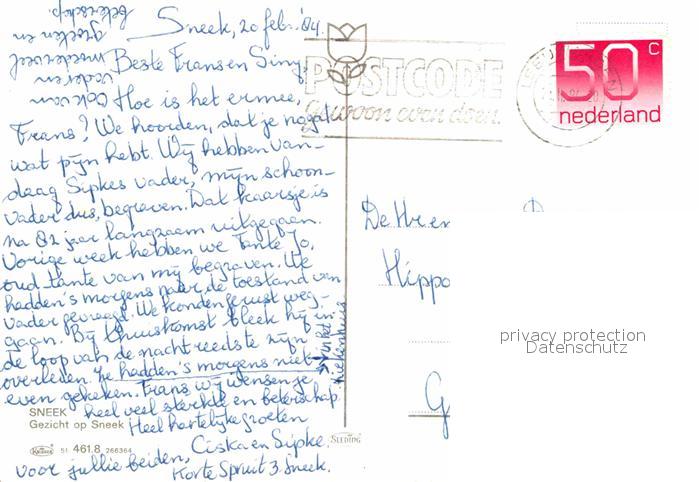 Sneek, 20 febr. '84.
Beste Frans en Siny,
Hoe is het ermee,
Frans? We hoorden, dat je nogal
wat pijn hebt. Wij hebben van-
daag Sipkes vader, mijn schoon-
vader dus, begraven. Dat kaarsje is
na 82 jaar langzaam uitgegaan.
Vorige week hebben we Tante Jo,
oud tante van mij begraven. We
hadden 's morgens naar de toestand van
vader gevraagd. We konden gerust weg-
gaan. Bij thuiskomst bleek hij in
de loop van de nacht reeds te zijn
overleden. Ze hadden 's morgens niet
even gekeken. Frans wij wensen je
heel veel sterkte en beterschap
Heel hartelijke groeten
voor jullie beiden,
Ciska en Sipke.
Korte Spruit 3. Sneek.
ook van
vader en
moeder veel
groeten en
beterschap.
in het
ziekenhuis
SNEEK
Gezicht op Sneek
51 461.8 266364
SLEDING
POSTCODE
gewoon even doen.
50 c
nederland
De Hr en
Hippo
G
privacy protection
Datenschutz